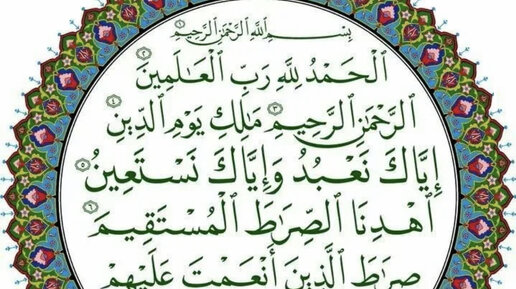 بِسْمِ ٱللَّهِ ٱلرَّحْمَٰنِ ٱلرَّحِيمِ ١
ٱلْحَمْدُ لِلَّهِ رَبِّ ٱلْعَٰلَمِينَ ٢
ٱلرَّحْمَٰنِ ٱلرَّحِيمِ ٣ مَٰلِكِ يَوْمِ ٱلدِّينِ ٤
إِيَّاكَ نَعْبُدُ وَإِيَّاكَ نَسْتَعِينُ ٥
ٱهْدِنَا ٱلصِّرَٰطَ ٱلْمُسْتَقِيمَ ٦
صِرَٰطَ ٱلَّذِينَ أَنْعَمْتَ عَلَيْهِمْ